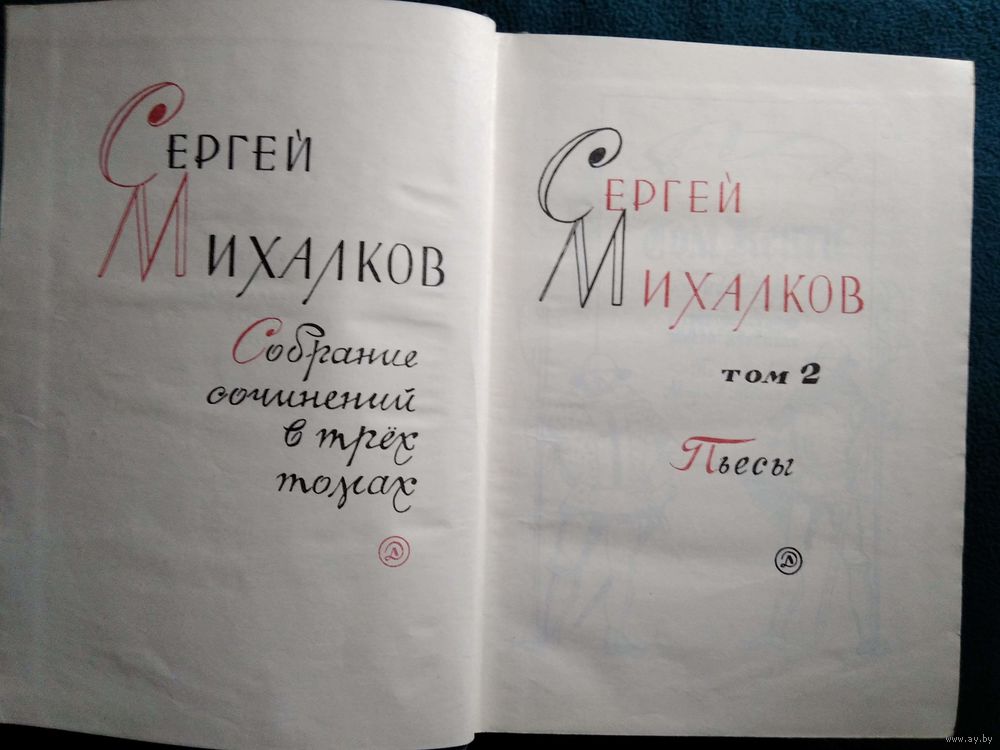 Сергей
Михалков
Собрание
сочинений
в трёх
томах
Д
Сергей
Михалков
том 2
Пьесы
Д
www.ay.by